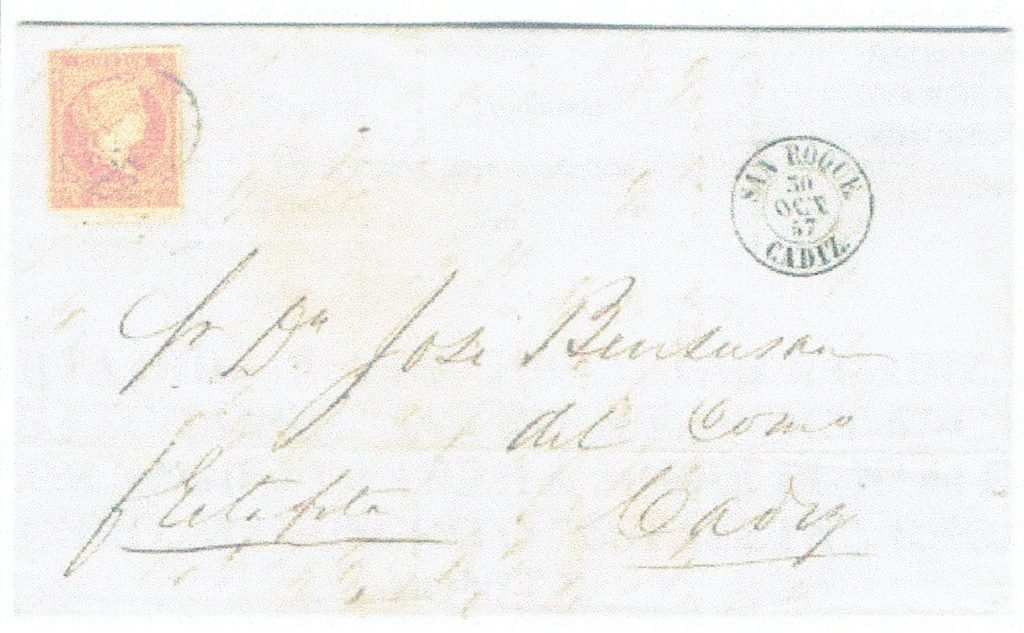 SAN ROQUE
30
OCT
57
CADIZ
Sr. Dn. Jose Bensusan
del Como
Cadiz